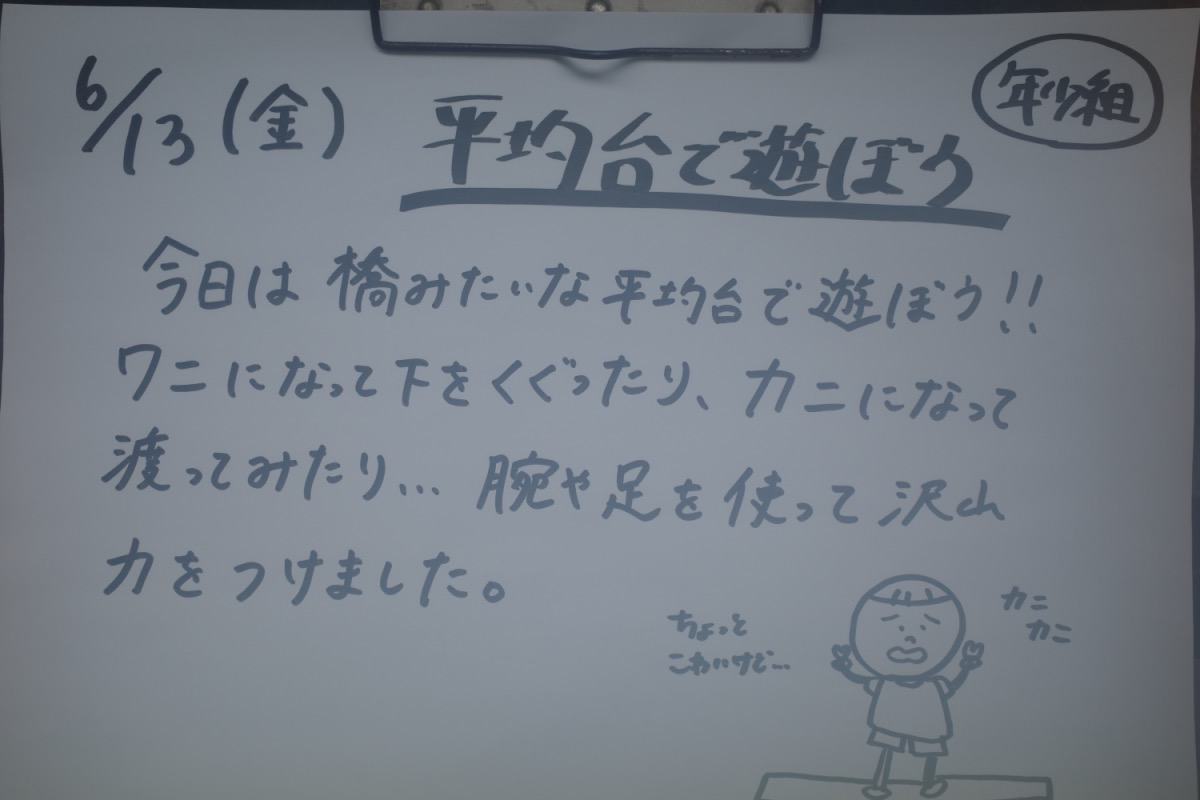 6/13(金) 平均台で遊ぼう
年少組
今日は橋みたいな平均台で遊ぼう!!
ワニになって下をくぐったり、カニになって
渡ってみたり… 腕や足を使って沢山
力をつけました。
ちょっと
こわいけど…
カニ
カニ